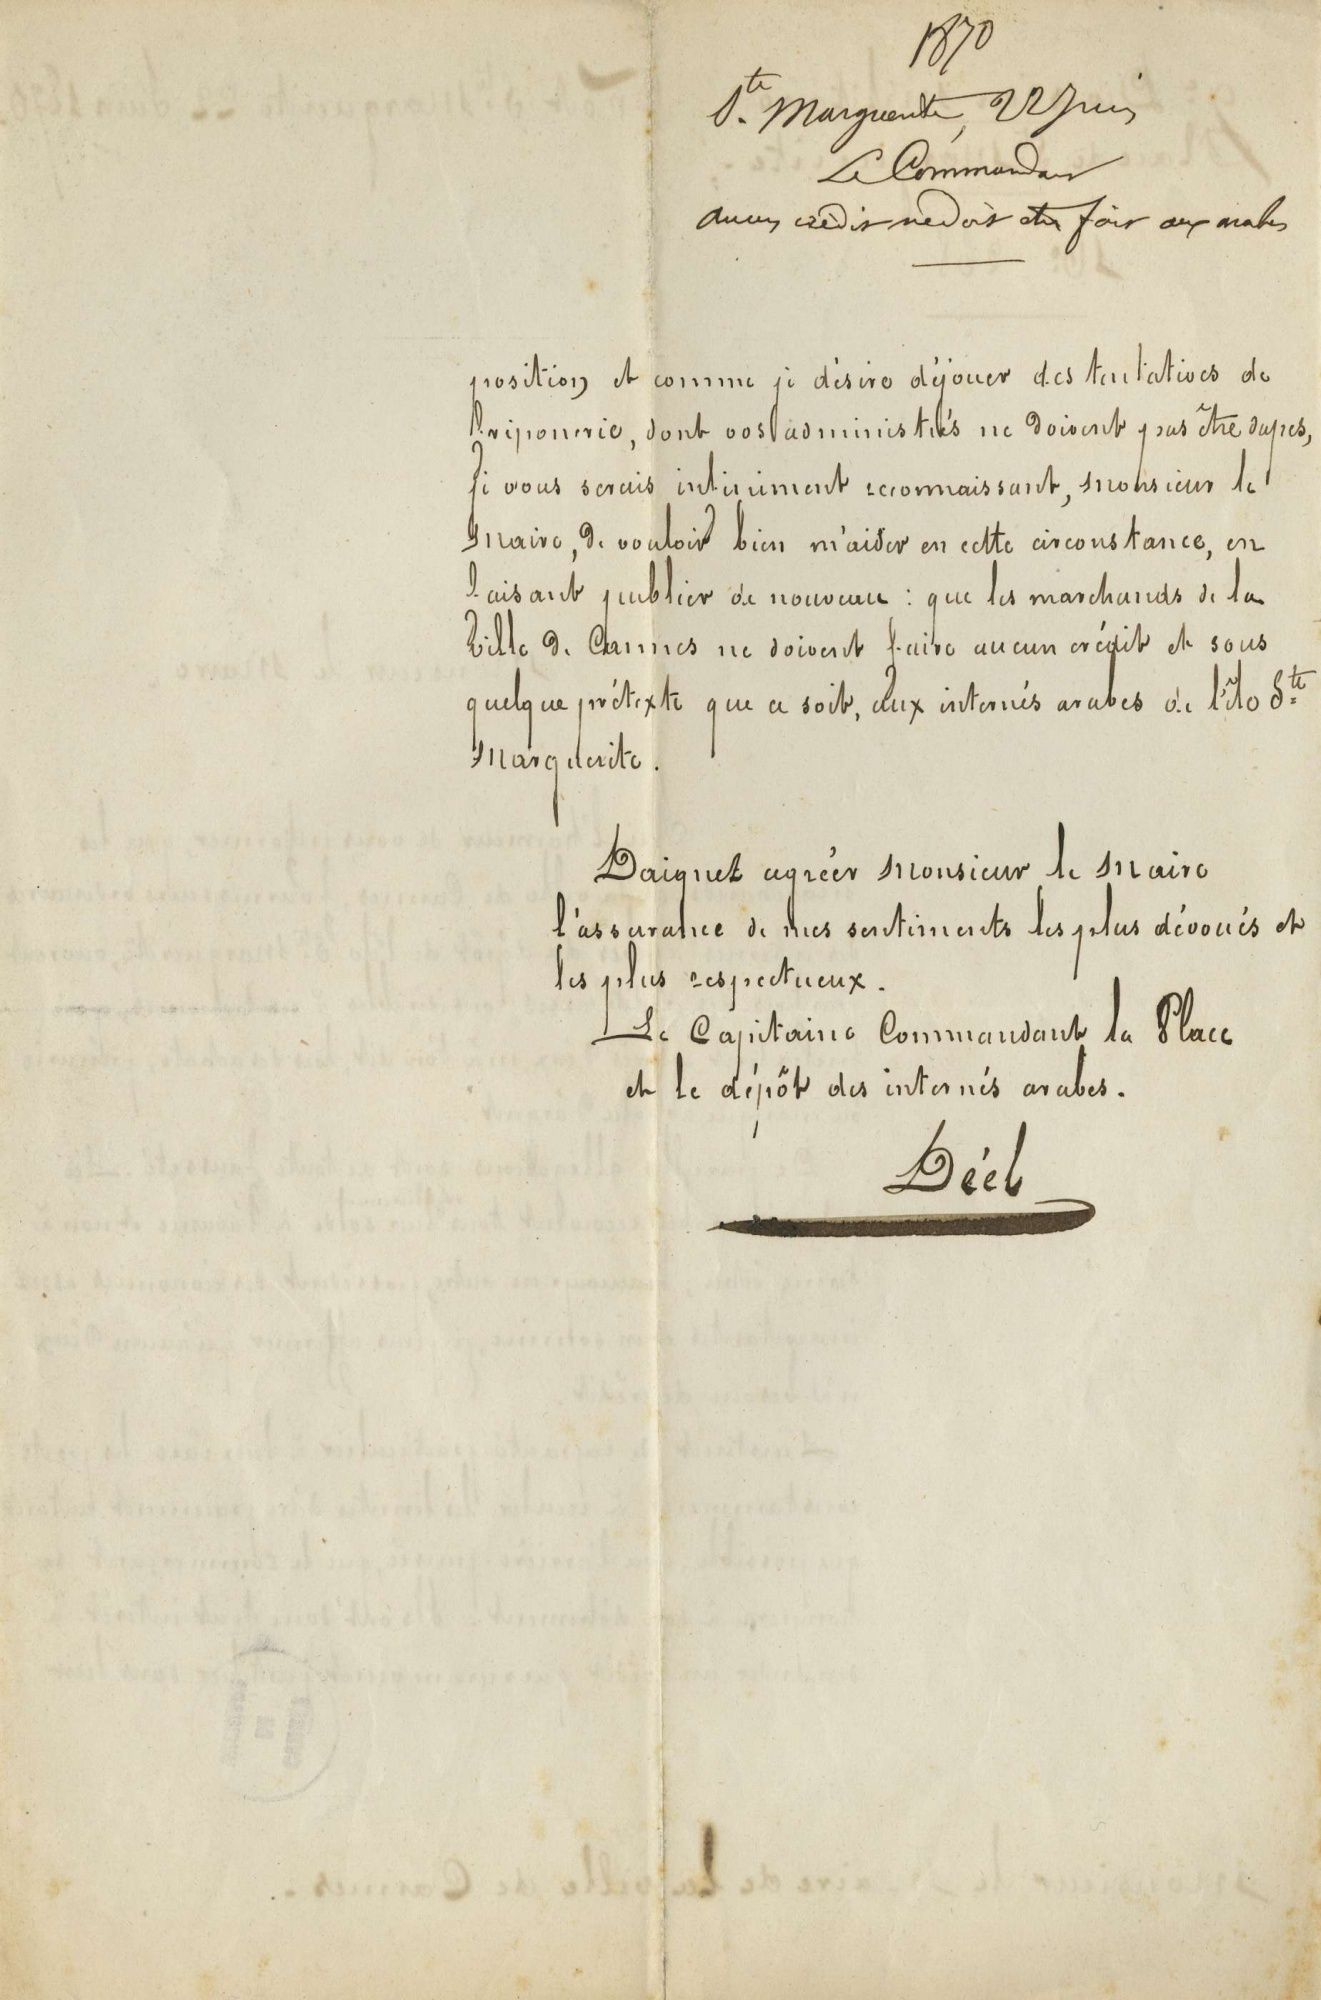 1870
Ste Marguerite, 22 Juin
Le Commandant
aucun crédit ne doit être fait aux arabes
position et comme je désire déjouer des tentatives de
friponerie, dont vos administrés ne doivent pas être dupes,
je vous serais infiniment reconnaissant, Monsieur le
Maire, de vouloir bien m'aider en cette circonstance, en
faisant publier de nouveau : que les marchands de la
Ville de Cannes ne doivent faire aucun crédit et sous
quelque prétexte que ce soit, aux internés arabes de l'île Ste
Marguerite.
Daignez agréer Monsieur le Maire
l'assurance de mes sentiments les plus dévoués et
les plus respectueux.
Le Capitaine Commandant la Place
et le dépôt des internés arabes.
Déel